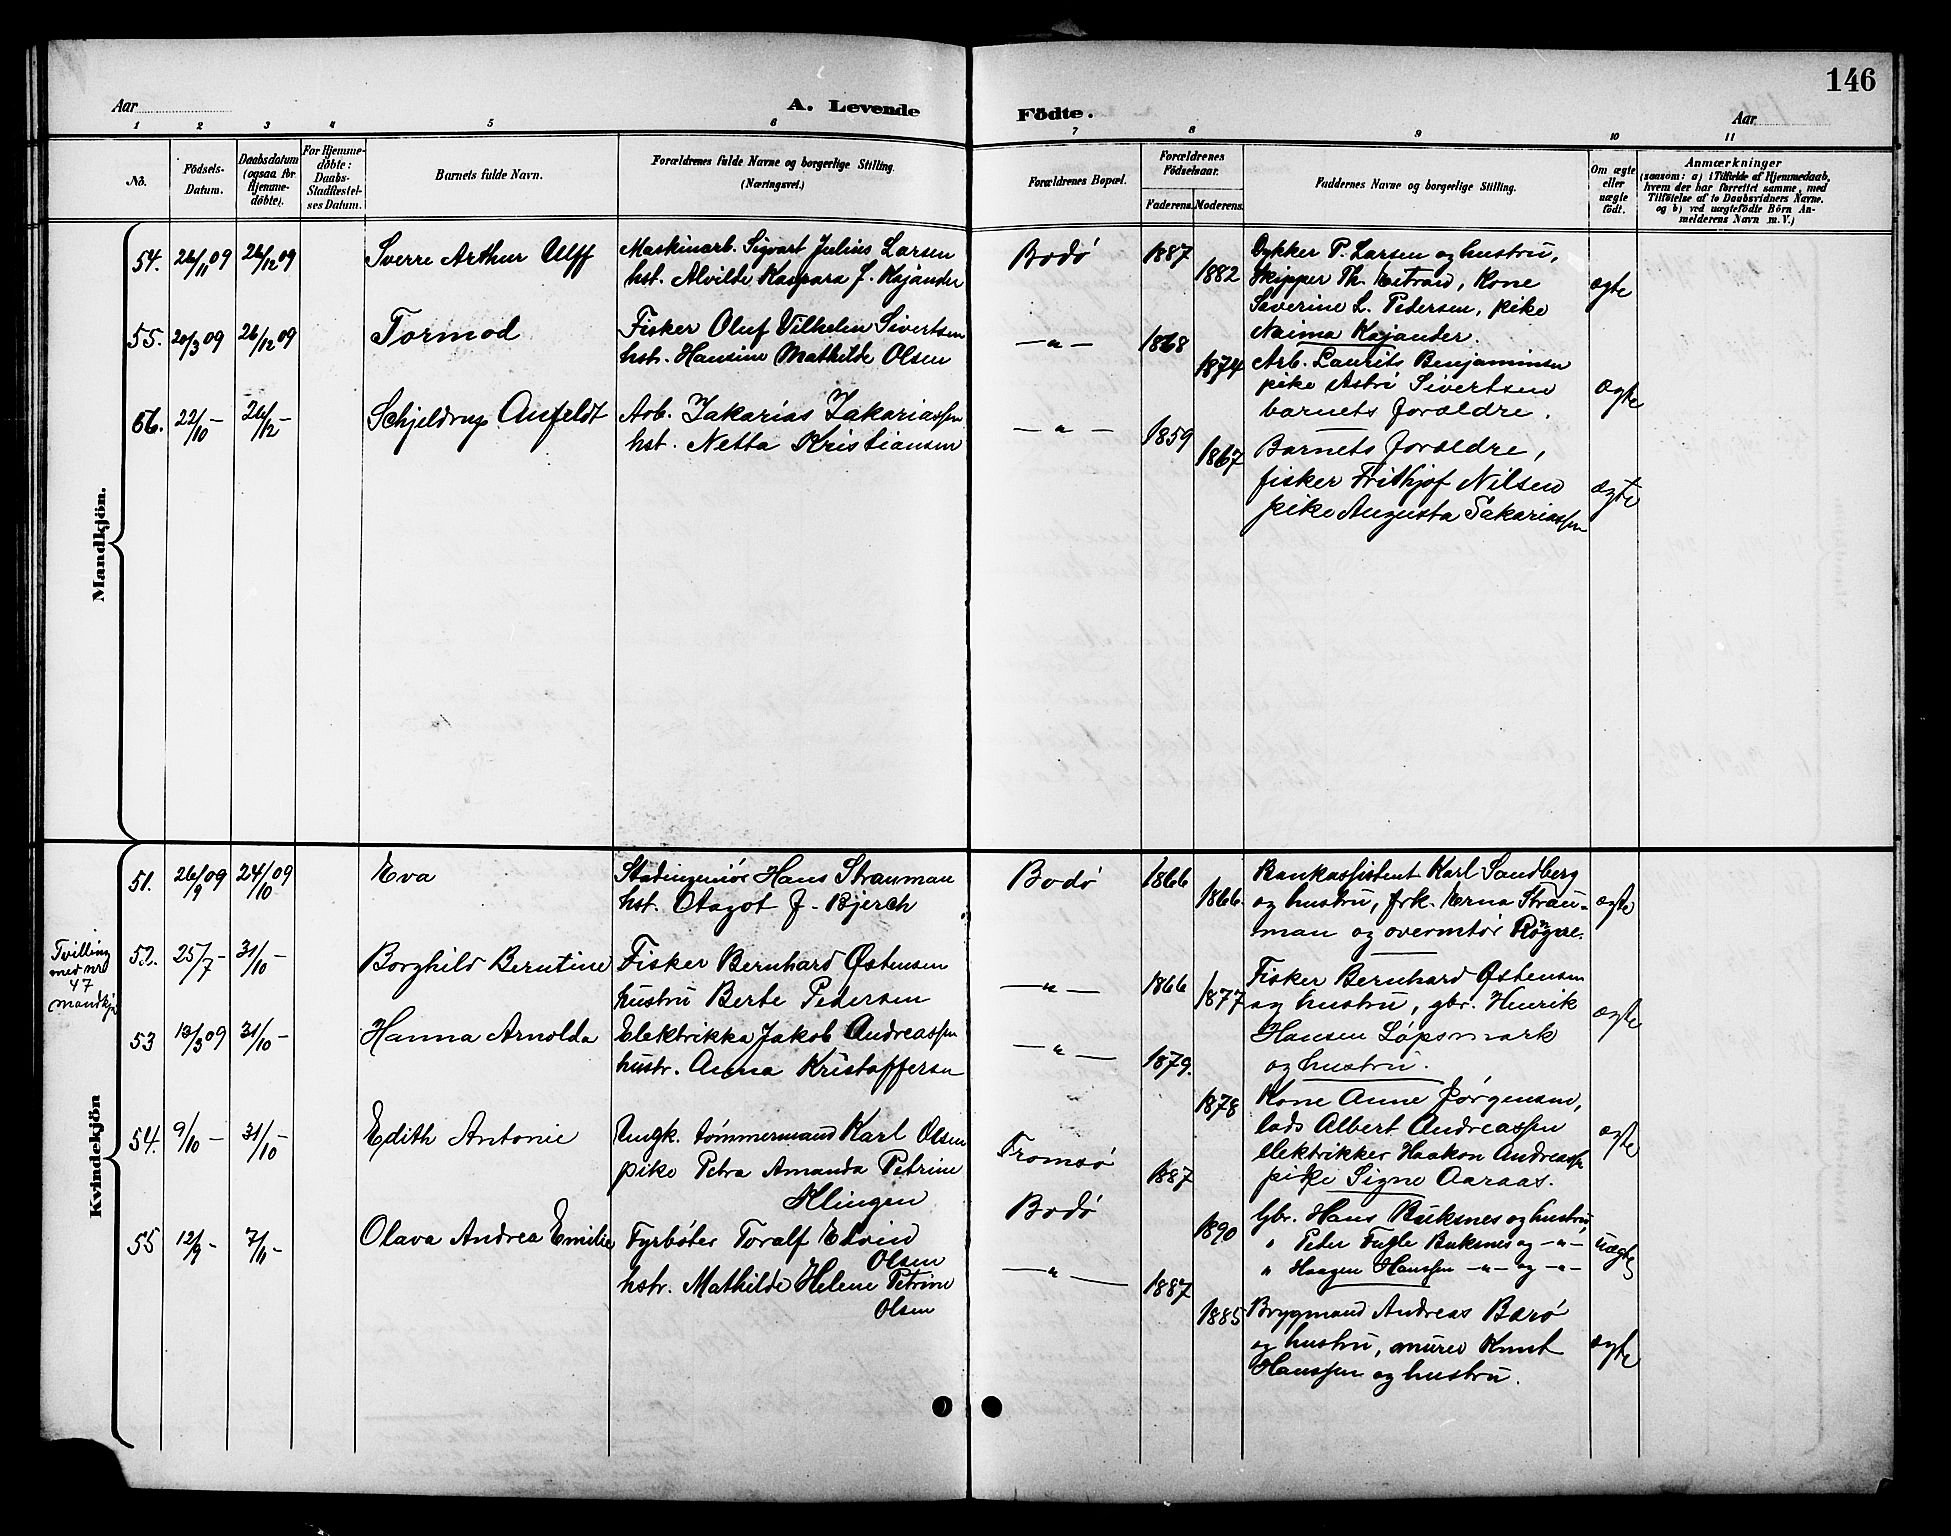 146
Aar
A. Levende
Födte.
Aar
1 2 3 4 5 6 7 8 9 10 11
No.
Födsels-
Datum.
Daabsdatum
(ogsaa for
Hjemme-
döbte).
For Hjemme-
döbte:
Daabs-
Stadfæstel-
ses Datum.
Barnets fulde Navn.
Forældrenes fulde Navne og borgerlige Stilling.
(Næringsvei.)
Forældrenes Bopæl.
Forældrenes
Födselsaar.
Faderens.
Moderens.
Faddernes Navne og borgerlige Stilling.
Om ægte
eller
uægte
födt.
Anmærkninger
(saasom: a) i Tilfælde af Hjemmedaab,
hvem der har forrettet samme, med
Tilföielse af to Daabsvidners Navne.
og b) ved uægtefödte Börn An-
melderens Navn m. V.)
Mandkjön.
54. 26/11 09 26/12 09 Sverre Arthur Ulff
Maskinarb. Sigvart Julius Larsen
hst. Alvilde Kaspara f. Kajander
Bodö 1887 1882
Dykker P. Larsen og hustru,
Skipper Th. , Kone
Severine L. Pedersen, pike
Naima Kajander.
ægte
55. 20/3 09 26/12 09 Tormod
Fisker Oluf Vilhelm Sivertsen
hstr. Hansine Mathilde Olsen
—"— 1868 1874
Arb. Laurits Benjaminsen
pike Astri Sivertsen
barnets forældre.
ægte
56. 22/10 - 26/12 - Schjeldrup Anfeldt
Arb. Zakarias Zakariassen
hst. Netta Kristiansen
—"— 1859 1867
Barnets forældre,
fisker Frithjof Nilsen
pike Augusta Sakariassen
ægte
Kvindekjön
51. 26/9 09 24/10 09 Eva
Stadingeniör Hans Strauman
hst. Otagot f. Bjerch
Bodö 1866 1866.
Bankassistent Karl Sandberg
og hustru, frk. Erna Strau-
man og overmtör
ægte
Tvilling
med nro
47
mandkjø
52. 25/7 - 31/10 - Borghild Berntine
Fisker Bernhard Østensen
hustru Berte Pedersen
—"— 1866 1877
Fisker Bernhard Østensen
og hustru, gbr. Henrik
Hansen Løpsmark
og hustru.
ægte
53 13/3 09 31/10 - Hanna Arnolda
Elektrikka Jakob Andreassen
hustr. Anna Kristoffersen
—"— 1879. 1878
Kone Anne Jørgensen,
lods Albert Andreassen
elektrikker Haakon Andreassen
pike Signe Aaraas.
ægte
54. 9/10 - 31/10 - Edith Antonie
Ungk. tømmermand Karl Olsen
pike Petra Amanda Petrine
Klingen
Tromsø
Bodö
1887 1890
Gbr. Hans Buksnes og hustru,
" Peder Fugle Buksnes og —"—
" Haagen Hanssen —"— og —"—
uægte
55 12/9 - 7/11 - Olava Andrea Emilie
Fyrbøter Toralf Edvin
Olsen
hstr. Mathilde Helene Petrine
Olsen
—"— 1887 1885
Brygmand Andreas Barø
og hustru, murer Knut
Hanssen og hustru.
ægte